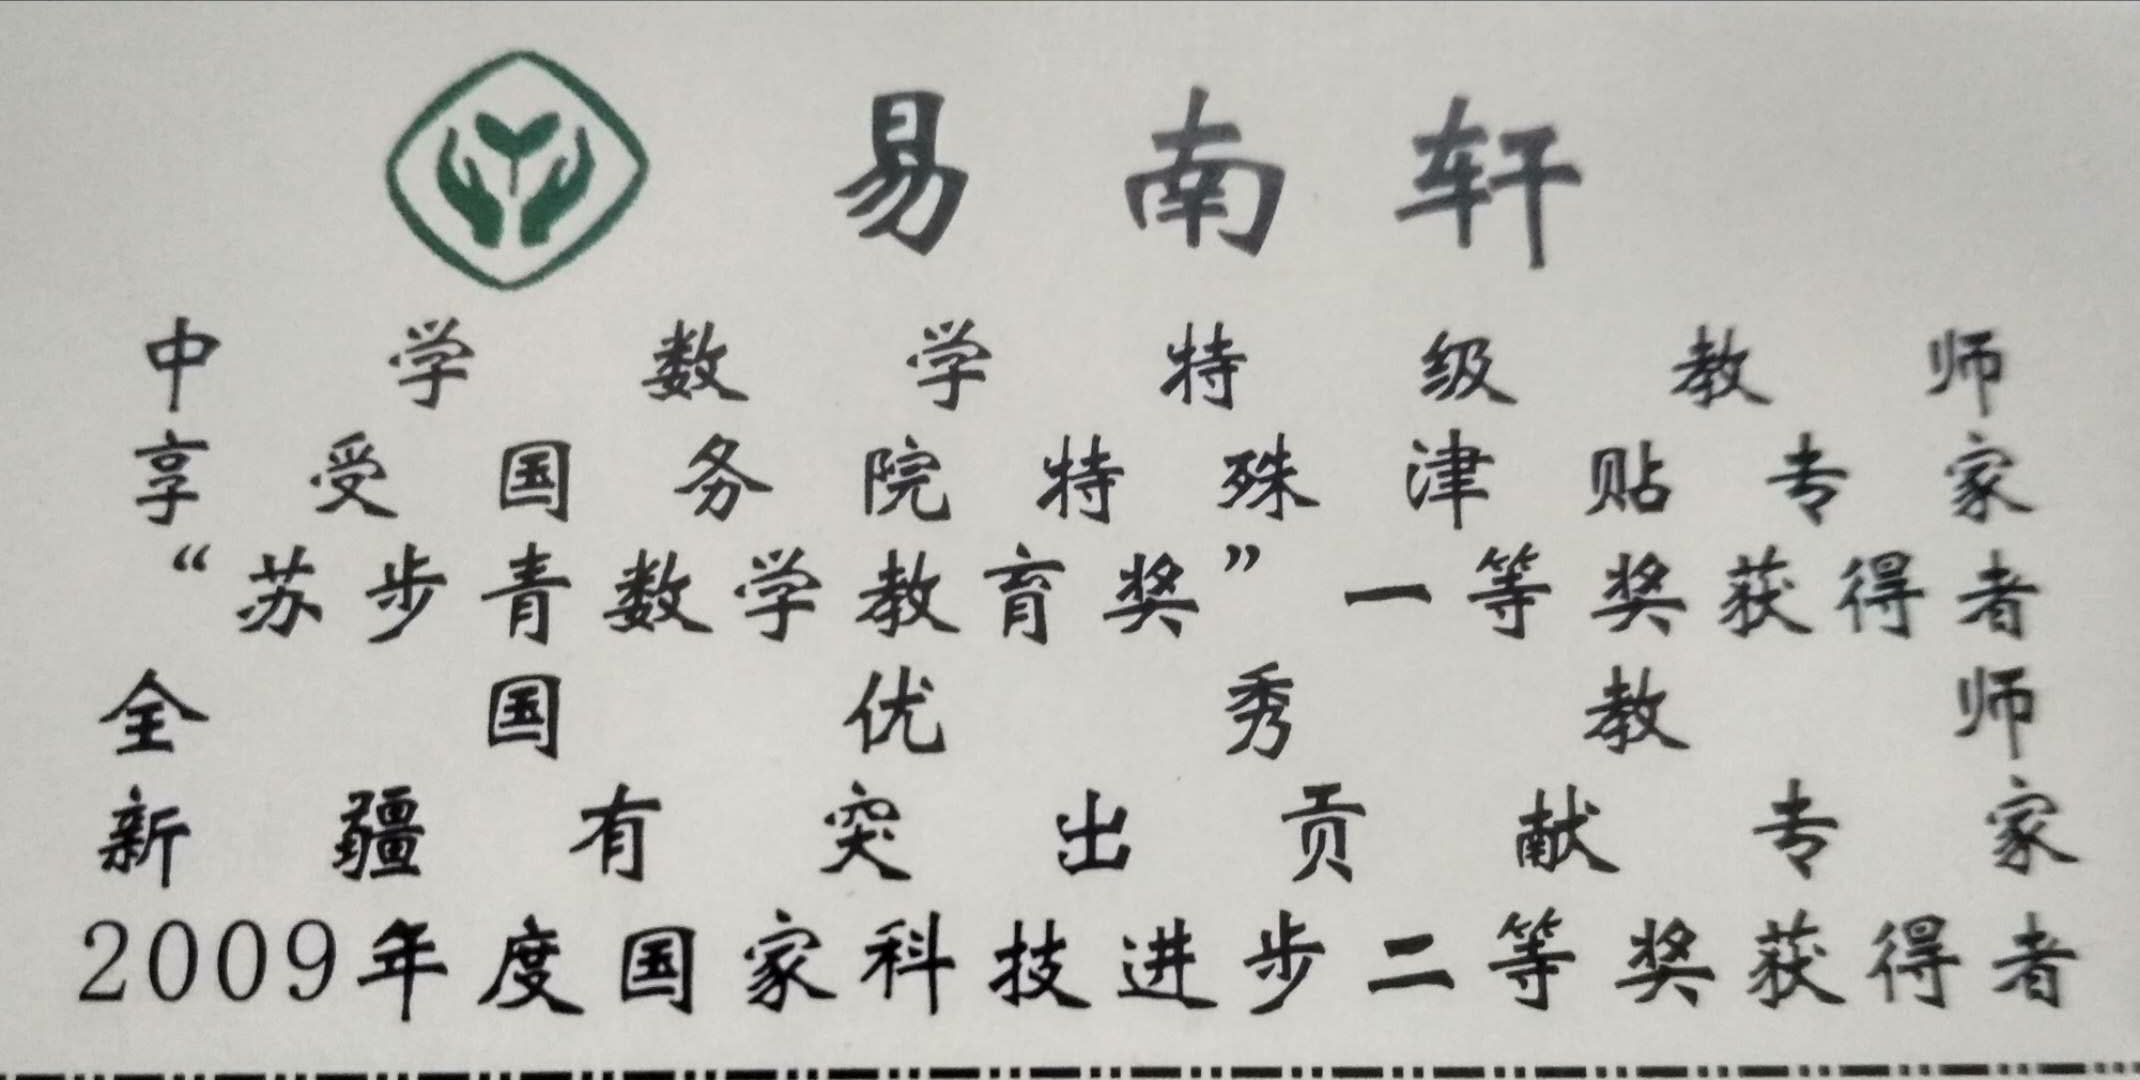 易南轩
中学数学特级教师
享受国务院特殊津贴专家
“苏步青数学教育奖”一等奖获得者
全国优秀教师
新疆有突出贡献专家
2009年度国家科技进步二等奖获得者